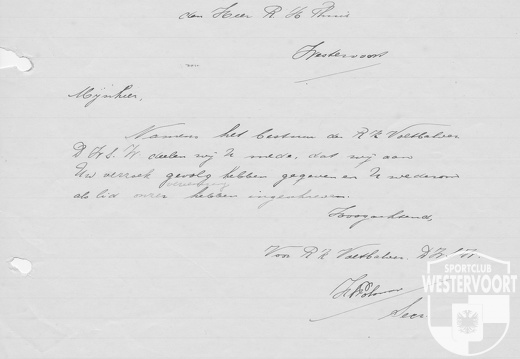 den Heer R H Thuis
Westervoort
Mijnheer,
Namens het bestuur der R K Voetbalver.
D.H.S. W. deelen wij U mede, dat wij aan
Uw verzoek gevolg hebben gegeven en U wederom
als lid onzer hebben ingeschreven.
vereeniging
Hoogachtend,
Voor R K Voetbalver. D.H.S.W.
Secr
SPORTCLUB
WESTERVOORT